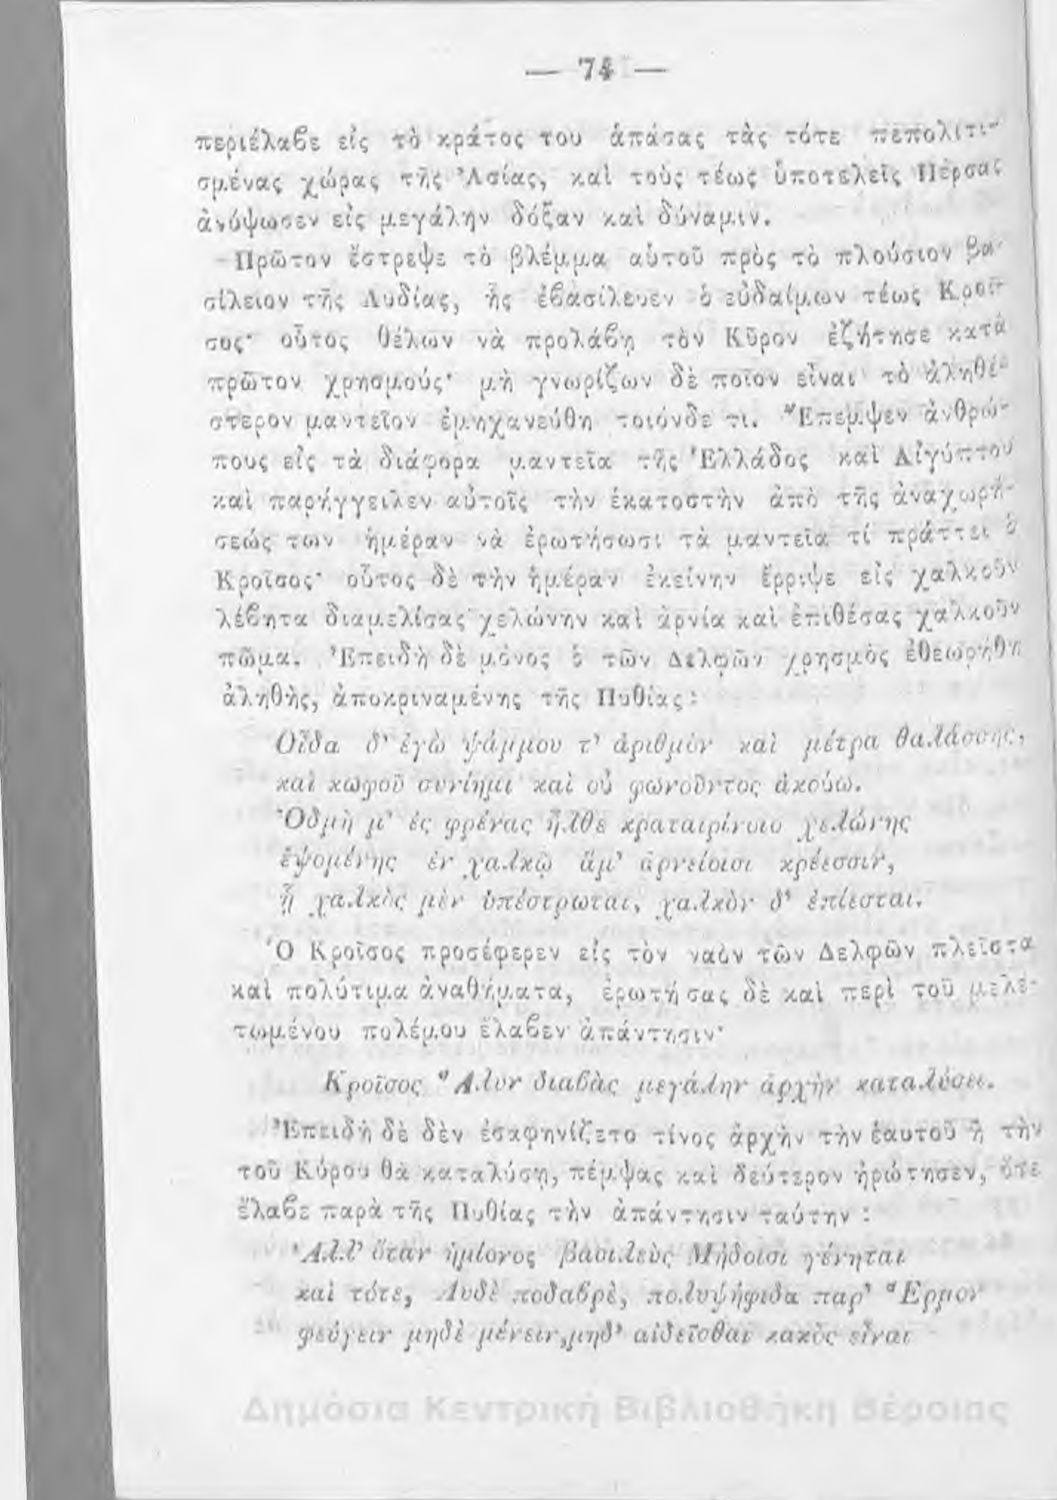 — 74 —
περιέλαβε εἰς τὸ κράτος του ἁπάσας τὰς τότε πεπολιτι-
σμένας χώρας τῆς Ἀσίας, καὶ τοὺς τέως ὑποτελεῖς Πέρσας
ἀνύψωσεν εἰς μεγάλην δόξαν καὶ δύναμιν.
Πρῶτον ἔστρεψε τὸ βλέμμα αὑτοῦ πρὸς τὸ πλούσιον βα-
σίλειον τῆς Λυδίας, ἧς ἐβασίλευεν ὁ εὐδαίμων τέως Κροῖ-
σος· οὗτος θέλων νὰ προλάβῃ τὸν Κῦρον ἐζήτησε κατὰ
πρῶτον χρησμούς· μὴ γνωρίζων δὲ ποῖον εἶναι τὸ ἀληθέ-
στερον μαντεῖον ἐμηχανεύθη τοιόνδε τι. Ἔπεμψεν ἀνθρώ-
πους εἰς τὰ διάφορα μαντεῖα τῆς Ἑλλάδος καὶ Αἰγύπτου
καὶ παρήγγειλεν αὐτοῖς τὴν ἑκατοστὴν ἀπὸ τῆς ἀναχωρή-
σεώς των ἡμέραν νὰ ἐρωτήσωσι τὰ μαντεῖα τί πράττει ὁ
Κροῖσος· οὗτος δὲ τὴν ἡμέραν ἐκείνην ἔρριψε εἰς χαλκοῦν
λέβητα διαμελίσας χελώνην καὶ ἀρνία καὶ ἐπιθέσας χαλκοῦν
πῶμα. Ἐπειδὴ δὲ μόνος ὁ τῶν Δελφῶν χρησμὸς ἐθεωρήθη
ἀληθής, ἀποκριναμένης τῆς Πυθίας:
Οἶδα δ' ἐγὼ ψάμμου τ' ἀριθμὸν καὶ μέτρα θαλάσσης,
καὶ κωφοῦ συνίημι καὶ οὐ φωνοῦντος ἀκούω.
Ὀδμὴ μ' ἐς φρένας ἦλθε κραταιρίνοιο χελώνης
ἑψομένης ἐν χαλκῷ ἅμ' ἀρνείοισι κρέεσσιν,
ᾗ χαλκὸς μὲν ὑπέστρωται, χαλκὸν δ' ἐπίεσται.
Ὁ Κροῖσος προσέφερεν εἰς τὸν ναὸν τῶν Δελφῶν πλεῖστα
καὶ πολύτιμα ἀναθήματα, ἐρωτήσας δὲ καὶ περὶ τοῦ μελε-
τωμένου πολέμου ἔλαβεν ἀπάντησιν·
Κροῖσος Ἅλυν διαβὰς μεγάλην ἀρχὴν καταλύσει.
Ἐπειδὴ δὲ δὲν ἐσαφηνίζετο τίνος ἀρχὴν τὴν ἑαυτοῦ ἢ τὴν
τοῦ Κύρου θὰ καταλύσῃ, πέμψας καὶ δεύτερον ἠρώτησεν, ὅτε
ἔλαβε παρὰ τῆς Πυθίας τὴν ἀπάντησιν ταύτην :
Ἀλλ' ὅταν ἡμίονος βασιλεὺς Μήδοισι γένηται
καὶ τότε, Λυδὲ ποδαβρὲ, πολυψήφιδα παρ' Ἕρμον
φεύγειν μηδὲ μένειν, μηδ' αἰδεῖσθαι κακὸς εἶναι
Δημόσια Κεντρική Βιβλιοθήκη Βέροιας